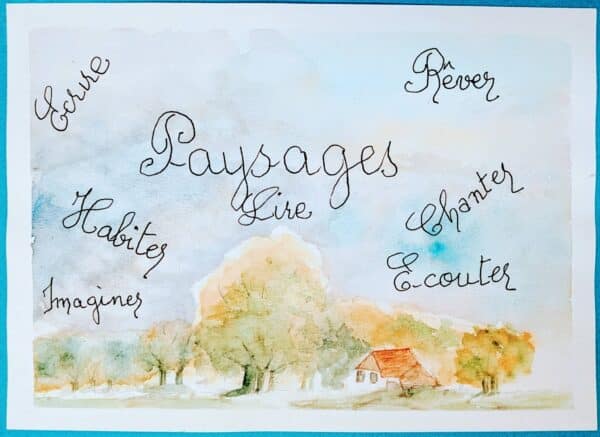 Ecrire
Rêver
Paysages
Lire
Habiter
Chanter
Ecouter
Imaginer